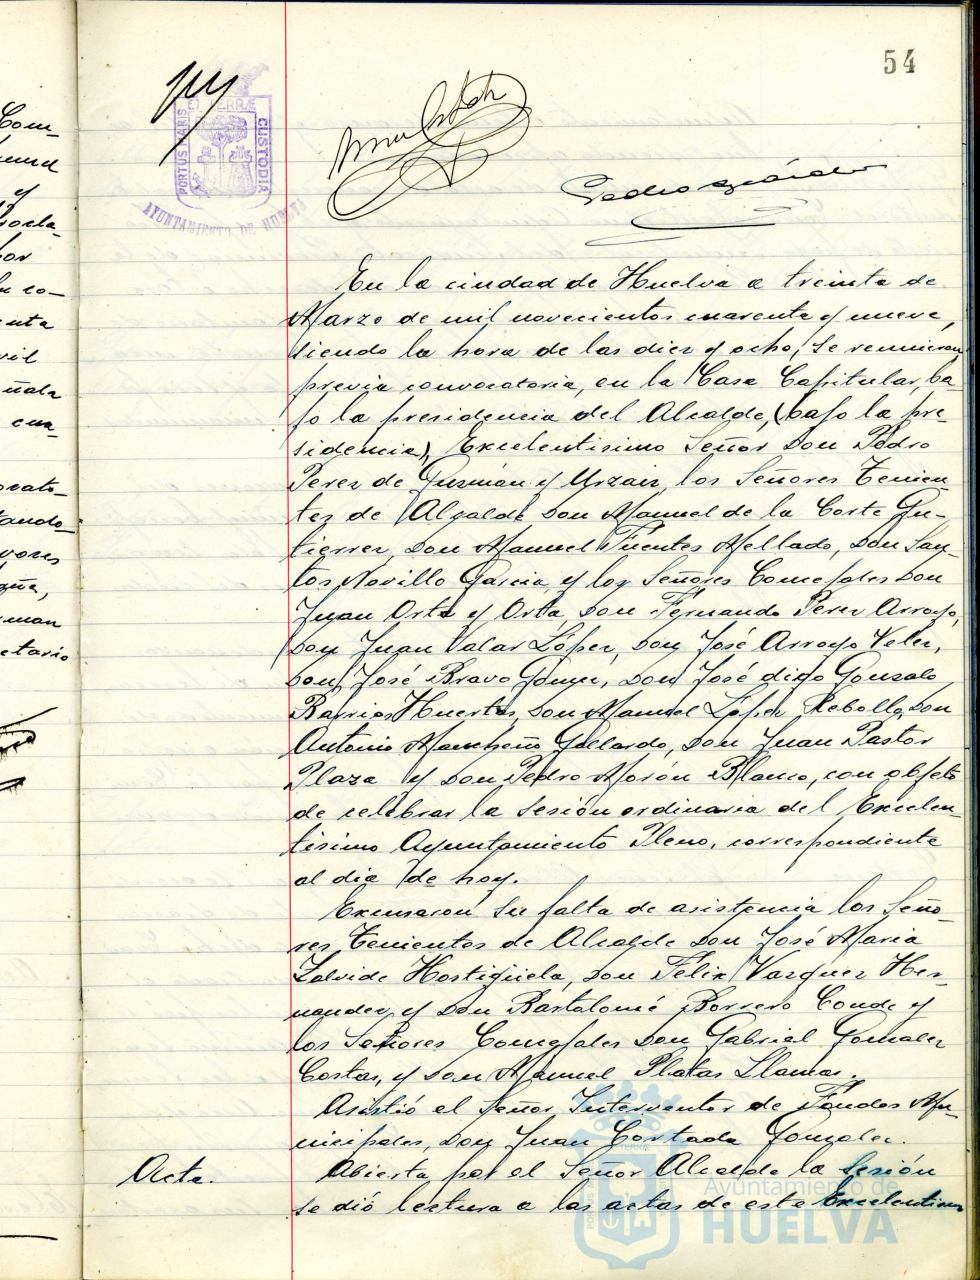 54
PORTUS MARIS ET TERRÆ CUSTODIA
AYUNTAMIENTO DE HUELVA
En la ciudad de Huelva a treinta de
Marzo de mil novecientos cuarenta y nueve,
siendo la hora de las diez y ocho, se reunieron
previa convocatoria, en la Casa Capitular, ba-
jo la presidencia del Alcalde, (bajo la pre-
sidencia), Excelentisimo Señor Don Pedro
Perez de Guzmán y Urzaiz, los Señores Tenien-
tes de Alcalde Don Manuel de la Corte Gu-
tierrez, Don Manuel Fuentes Mellado, Don San-
tos Novillo Garcia, y los Señores Concejales Don
Juan Orta y Orta, Don Fernando Perez Arroyo,
Don Juan Valar López, Don José Arroyo Velez,
Don José Bravo Gomez, Don José digo Gonzalo
Barrios Huertas, Don Manuel López Rebollo, Don
Antonio Mancheño Gallardo, Don Juan Pastor
Plaza y Don Pedro Morón Blanco, con objeto
de celebrar la sesión ordinaria del Excelen-
tisimo Ayuntamiento Pleno, correspondiente
al dia de hoy.
Excusaron su falta de asistencia los Seño-
res Tenientes de Alcalde Don José Maria
Zalvide Hostigüela, Don Felix Vazquez Her-
nandez y Don Bartolomé Borrero Conde y
los Señores Concejales Don Gabriel Gonzalez
Costas, y Don Manuel Platas Llamas.
Asistió el Señor Interventor de Fondos Mu-
nicipales, Don Juan Cortada Gonzalez.
Acta.
Abierta por el Señor Alcalde la Sesión
se dió lectura a las actas de este Excelentisi
Ayuntamiento de
HUELVA